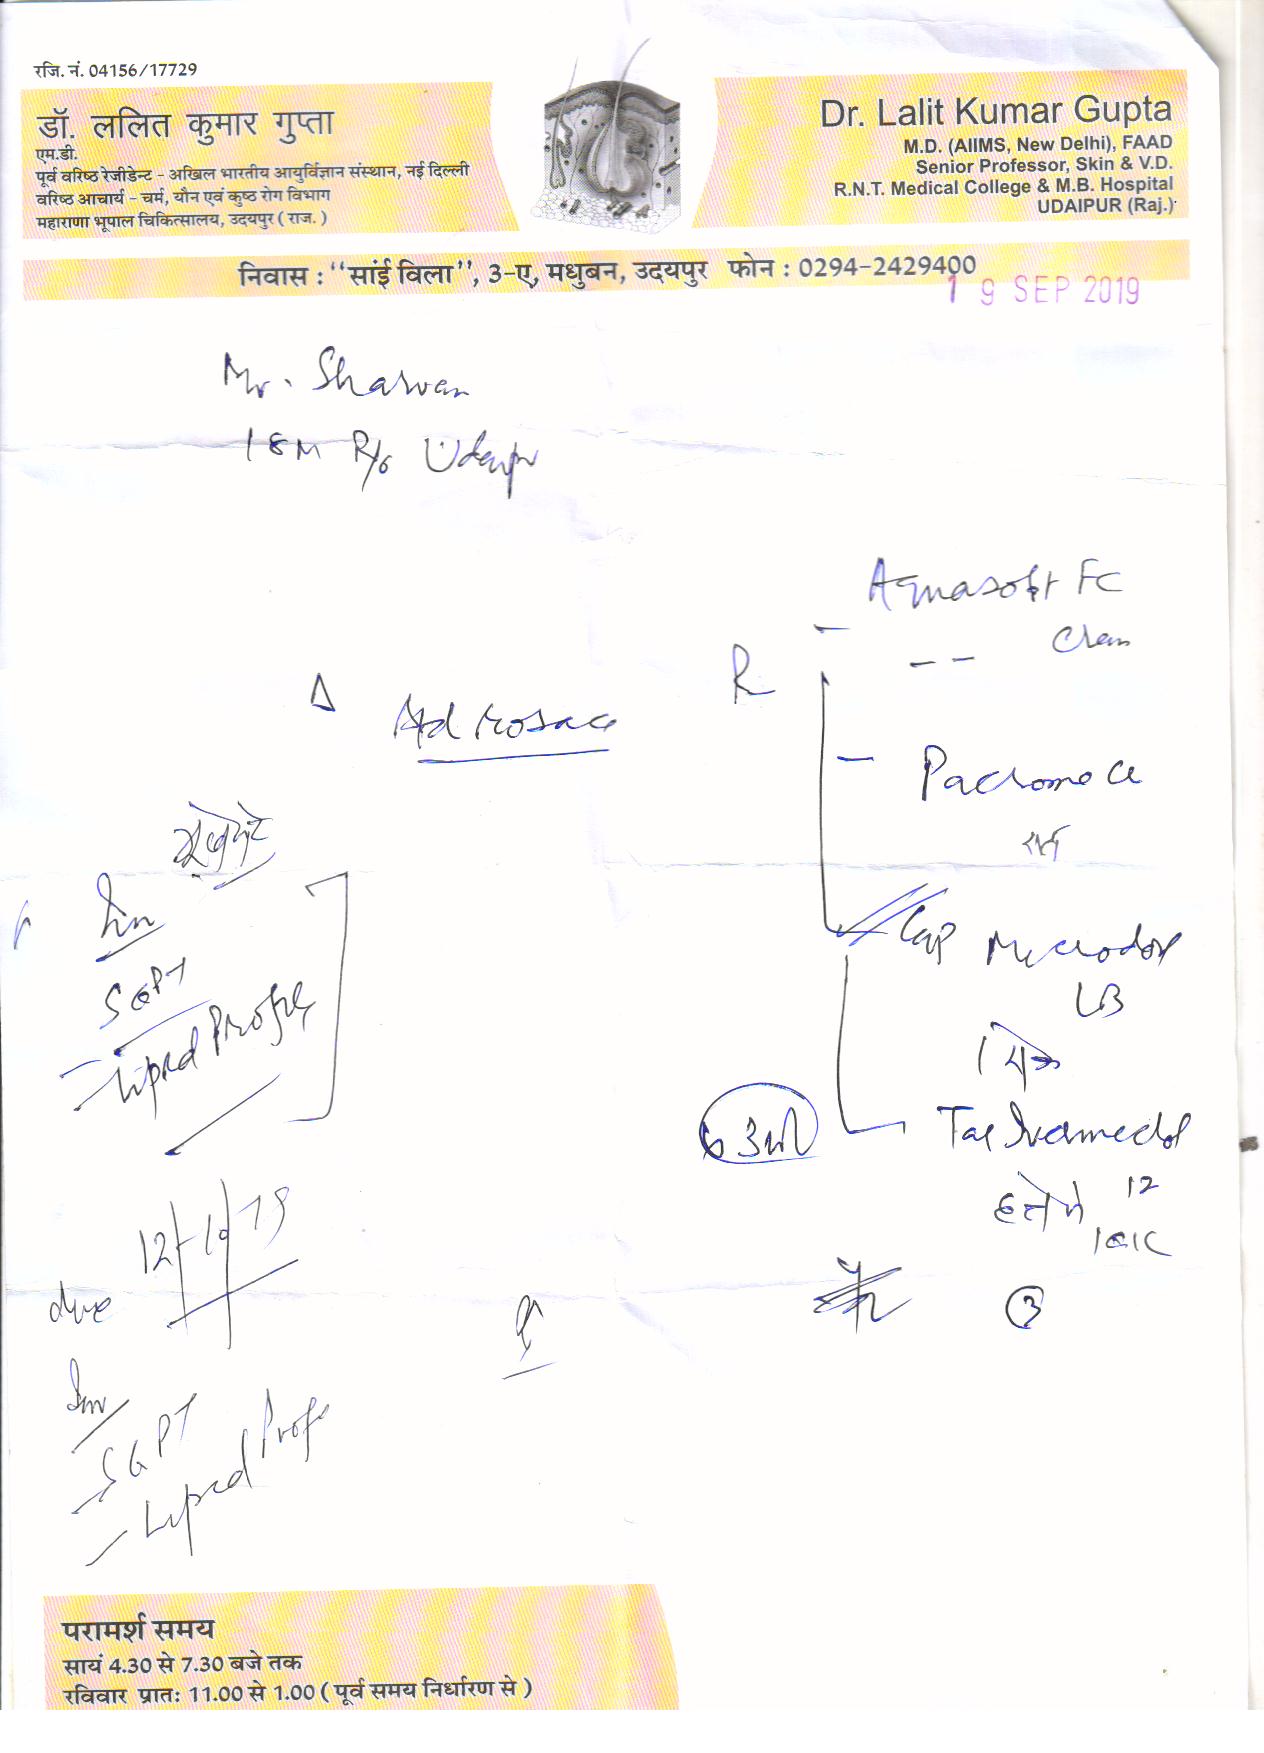 रजि. नं. 04156/17729
डॉ. ललित कुमार गुप्ता
एम.डी.
पूर्व वरिष्ठ रेजीडेन्ट - अखिल भारतीय आयुर्विज्ञान संस्थान, नई दिल्ली
वरिष्ठ आचार्य - चर्म, यौन एवं कुष्ठ रोग विभाग
महाराणा भूपाल चिकित्सालय, उदयपुर ( राज. )
Dr. Lalit Kumar Gupta
M.D. (AIIMS, New Delhi), FAAD
Senior Professor, Skin & V.D.
R.N.T. Medical College & M.B. Hospital
UDAIPUR (Raj.)
निवास : "सांई विला", 3-ए, मधुबन, उदयपुर फोन : 0294-2429400
19 SEP 2019
Mr. Sharvan
18M R/o Udaipur
Aquasoft FC
Cream
R
Δ
Pacroma
Cap Microdox
LB
1
Inv
SGPT
Lipid Profile
Tab Ivermectol
12
3
12/10/19
due
Inv
SGPT
Lipid Prof
परामर्श समय
सायं 4.30 से 7.30 बजे तक
रविवार प्रातः 11.00 से 1.00 ( पूर्व समय निर्धारण से )